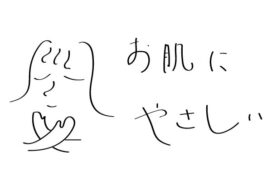 お肌に
やさしい